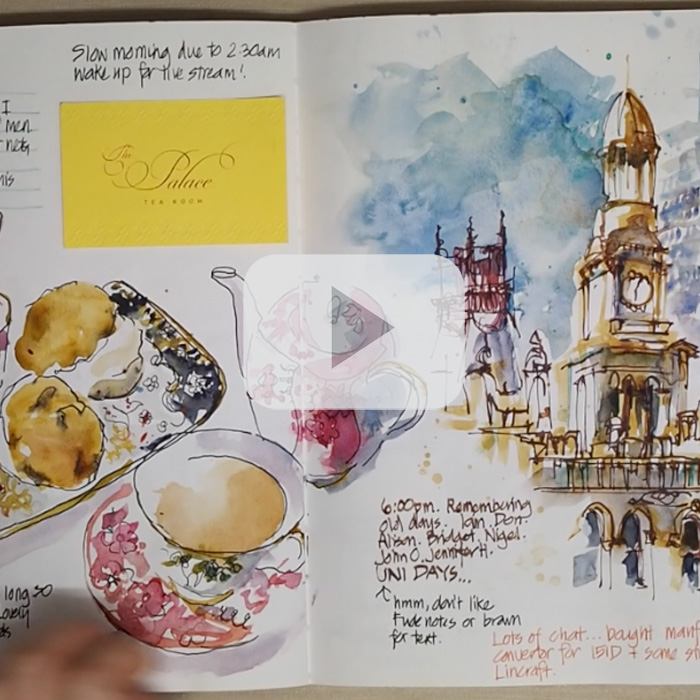 Slow morning due to 2:30am
wake up for live stream!
I
men
The
Palace
TEA ROOM
long so
6:00pm. Remembering
old days. Iain. Don.
Alison. Bridget. Nigel.
John O. Jennifer H.
UNI DAYS...
hmm, don't like
Fude notes or brown
for text.
Lots of chat... bought
convertor for 151D + some
Lincraft.